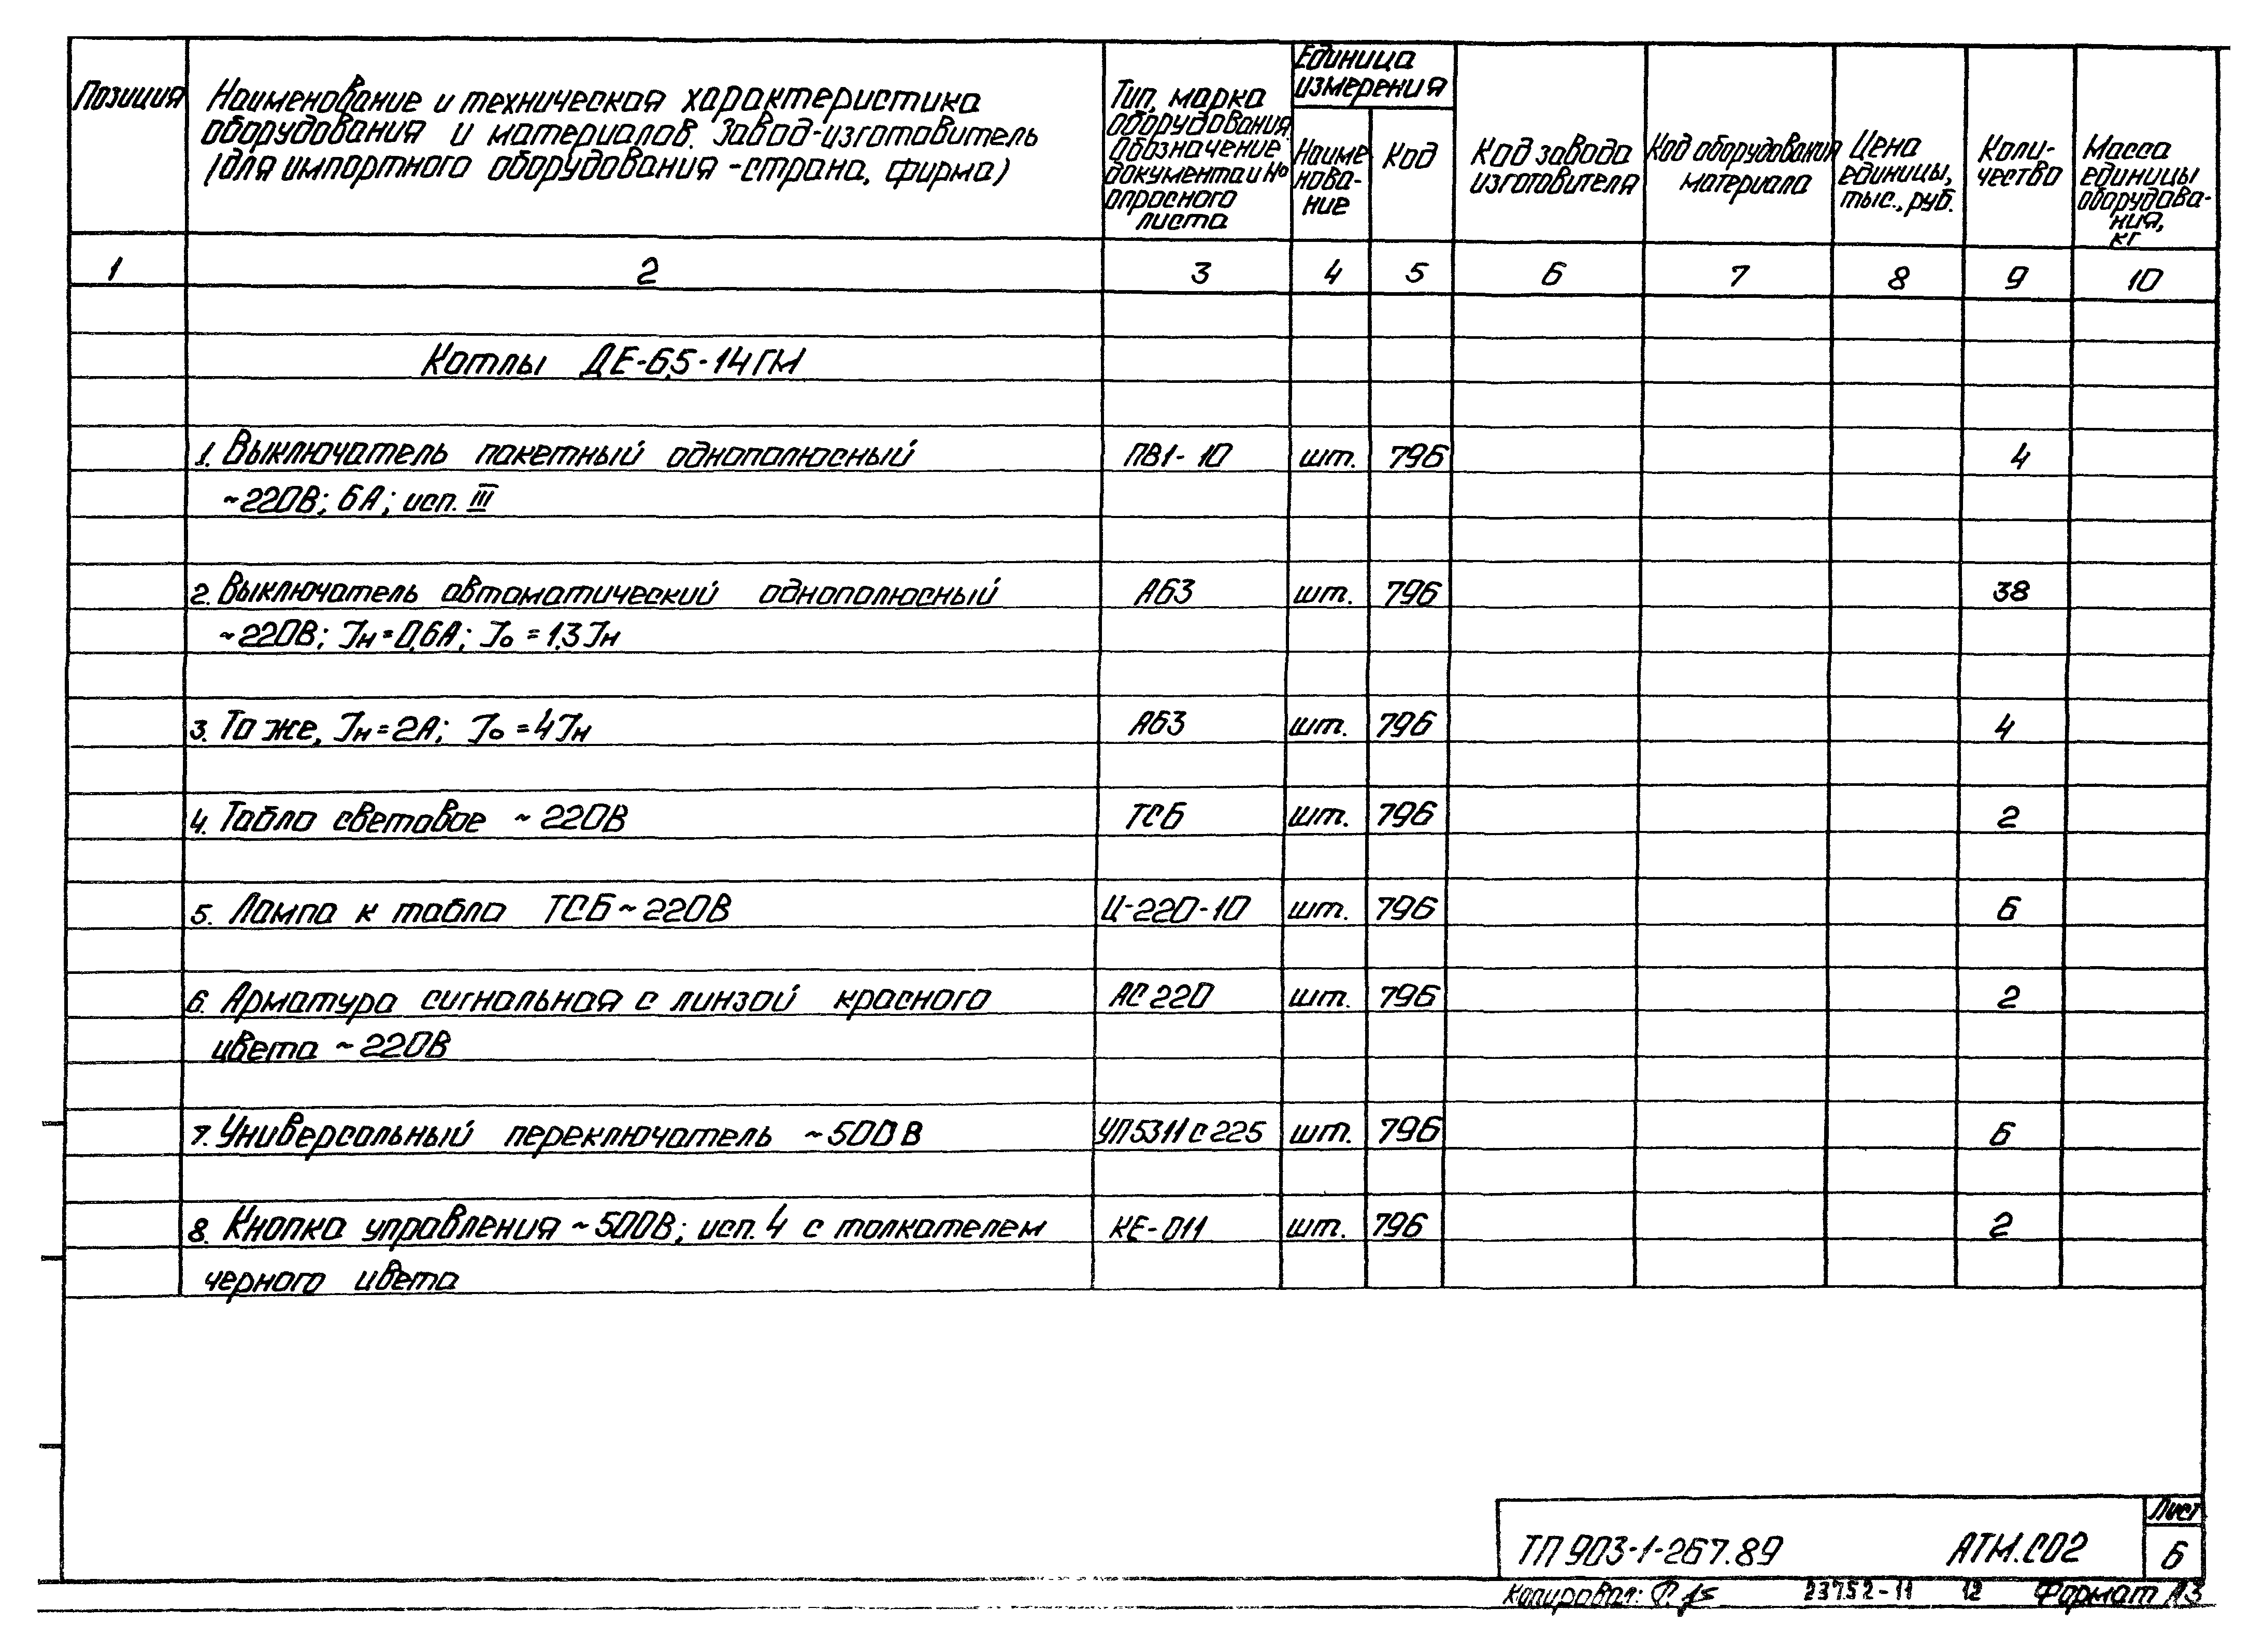 Позиция
Наименование и техническая характеристика
оборудования и материалов. Завод-изготовитель
(для импортного оборудования - страна, фирма)
Тип, марка
оборудования.
Обозначение
документа и №
опросного
листа
Единица
измерения
Наиме
нова-
ние
Код
Код завода
изготовителя
Код оборудования
материала
Цена
единицы,
тыс., руб.
Коли-
чество
Масса
единицы
оборудова-
ния,
кг
1 2 3 4 5 6 7 8 9 10
Котлы ДЕ-6,5-14ГМ
1. Выключатель пакетный однополюсный ПВ1-10 шт. 796 4
~220В; 6А; исп. III
2. Выключатель автоматический однополюсный А63 шт. 796 38
~220В; Iн=0,6А; Iо=1,3Iн
3. То же, Iн=2А; Iо=4Iн А63 шт. 796 4
4. Табло световое ~220В ТСБ шт. 796 2
5. Лампа к табло ТСБ ~220В Ц-220-10 шт. 796 6
6. Арматура сигнальная с линзой красного АС 220 шт. 796 2
цвета ~220В
7. Универсальный переключатель ~500В УП5311 С 225 шт. 796 6
8. Кнопка управления ~500В; исп. 4 с толкателем КЕ-011 шт. 796 2
черного цвета
ТП 903-1-267.89 АТМ.СО2
Лист
6
Копировал: 23752-11 12 Формат А3